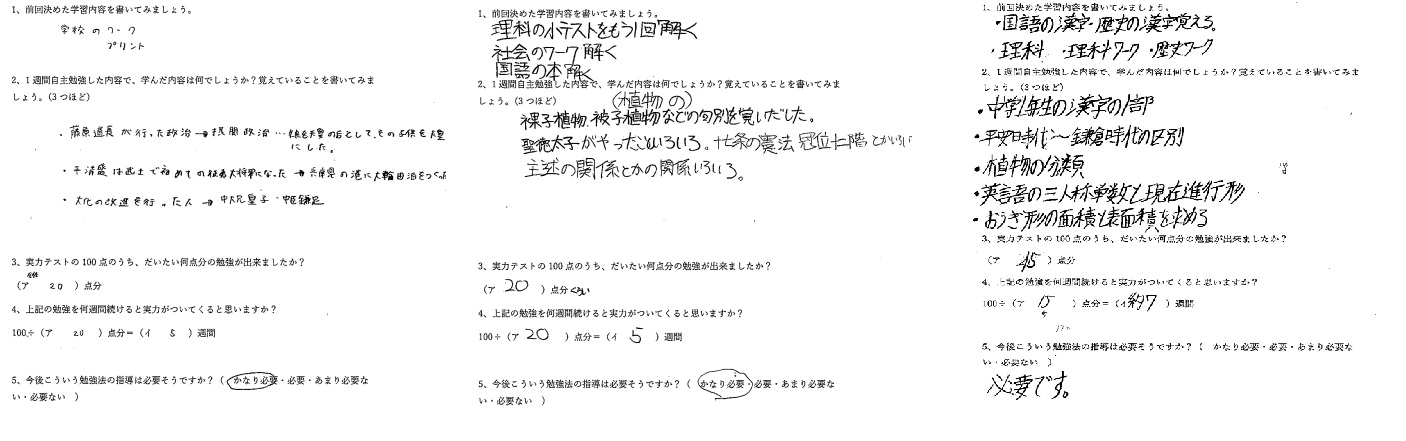 1、前回決めた学習内容を書いてみましょう。
学校のワーク
プリント
2、1週間自主勉強した内容で、学んだ内容は何でしょうか？覚えていることを書いてみま
しょう。(3つほど)
・藤原道長が行った政治→摂関政治…娘を天皇の后として、その子供を天皇
にした。
・平清盛は武士で初めての征夷大将軍になった→兵庫県の港に大輪田泊をつくった
・大化の改進を行った人→中大兄皇子・中臣鎌足
3、実力テストの100点のうち、だいたい何点分の勉強が出来ましたか？
(ア 20 ) 点分
4、上記の勉強を何週間続けると実力がついてくると思いますか？
100÷(ア 20 ) 点分＝(イ 5 ) 週間
5、今後こういう勉強法の指導は必要そうですか？( かなり必要・必要・あまり必要な
い・必要ない )
1、前回決めた学習内容を書いてみましょう。
理科の小テストをもう1回解く
社会のワーク解く
国語の本解く
2、1週間自主勉強した内容で、学んだ内容は何でしょうか？覚えていることを書いてみま
しょう。(3つほど)
(植物の)
裸子植物、被子植物などの句別を覚いだした。
聖徳太子がやったこといろいろ。十七条の憲法 冠位十二階とかいろいろ
主述の関係とかの関係いろいろ。
3、実力テストの100点のうち、だいたい何点分の勉強が出来ましたか？
(ア 20 ) 点分くらい
4、上記の勉強を何週間続けると実力がついてくると思いますか？
100÷(ア 20 ) 点分＝(イ 5 ) 週間
5、今後こういう勉強法の指導は必要そうですか？( かなり必要・必要・あまり必要な
い・必要ない )
1、前回決めた学習内容を書いてみましょう。
・国語の漢字・歴史の漢字覚える。
・理科 ・理科ワーク ・歴史ワーク
2、1週間自主勉強した内容で、学んだ内容は何でしょうか？覚えていることを書いてみま
しょう。(3つほど)
・中学1年生の漢字の1部
・平安時代〜鎌倉時代の区別
・植物の分類
・英語語の三人称単数と現在進行形
・おうぎ形の面積と表面積を求める
3、実力テストの100点のうち、だいたい何点分の勉強が出来ましたか？
(ア 45 ) 点分
4、上記の勉強を何週間続けると実力がついてくると思いますか？
100÷(ア 15 ) 点分＝(イ 約7 ) 週間
5、今後こういう勉強法の指導は必要そうですか？( かなり必要・必要・あまり必要な
い・必要ない )
必要です。